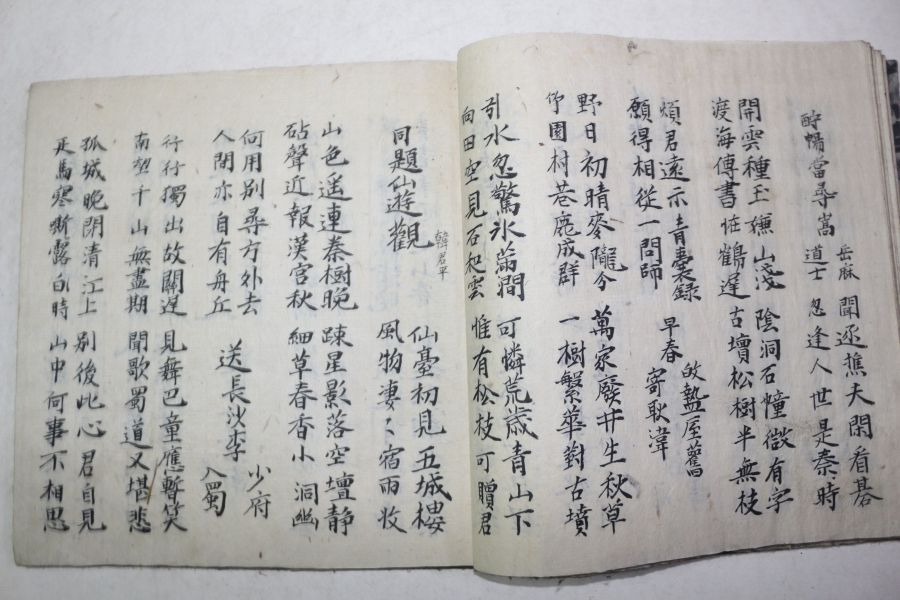 酧暢當尋嵩
岳麻
道士
聞逐樵夫閑看碁
忽逢人世是秦時
開雲種玉嫌山淺 陰洞石幢微有字
渡海傳書恠鶴遲 古壇松樹半無枝
煩君遠示青囊錄
願得相從一問師
早春
敀盩厔舊
寄耿湋
野日初晴麥隴分 萬家廢井生秋草
伃園村巷鹿成群 一樹繁華對古墳
引水忽驚氷滿澗 可憐荒歲青山下
向田空見石和雲 惟有松枝可贈君
同題仙遊觀
韓君平
仙臺初見五城樓
風物凄〻宿雨收
山色遥連秦樹晚 踈星影落空壇静
砧聲近報漢宮秋 細草春香小洞幽
何用別尋方外去
人間亦自有舟丘
送長沙李
少府
入蜀
行行獨出故關遲 見舞巴童應暫笑
南望千山無盡期 聞歌蜀道又堪悲
孤城晚閉清江上 別後此心君自見
疋馬寒嘶露白時 山中何事不相思